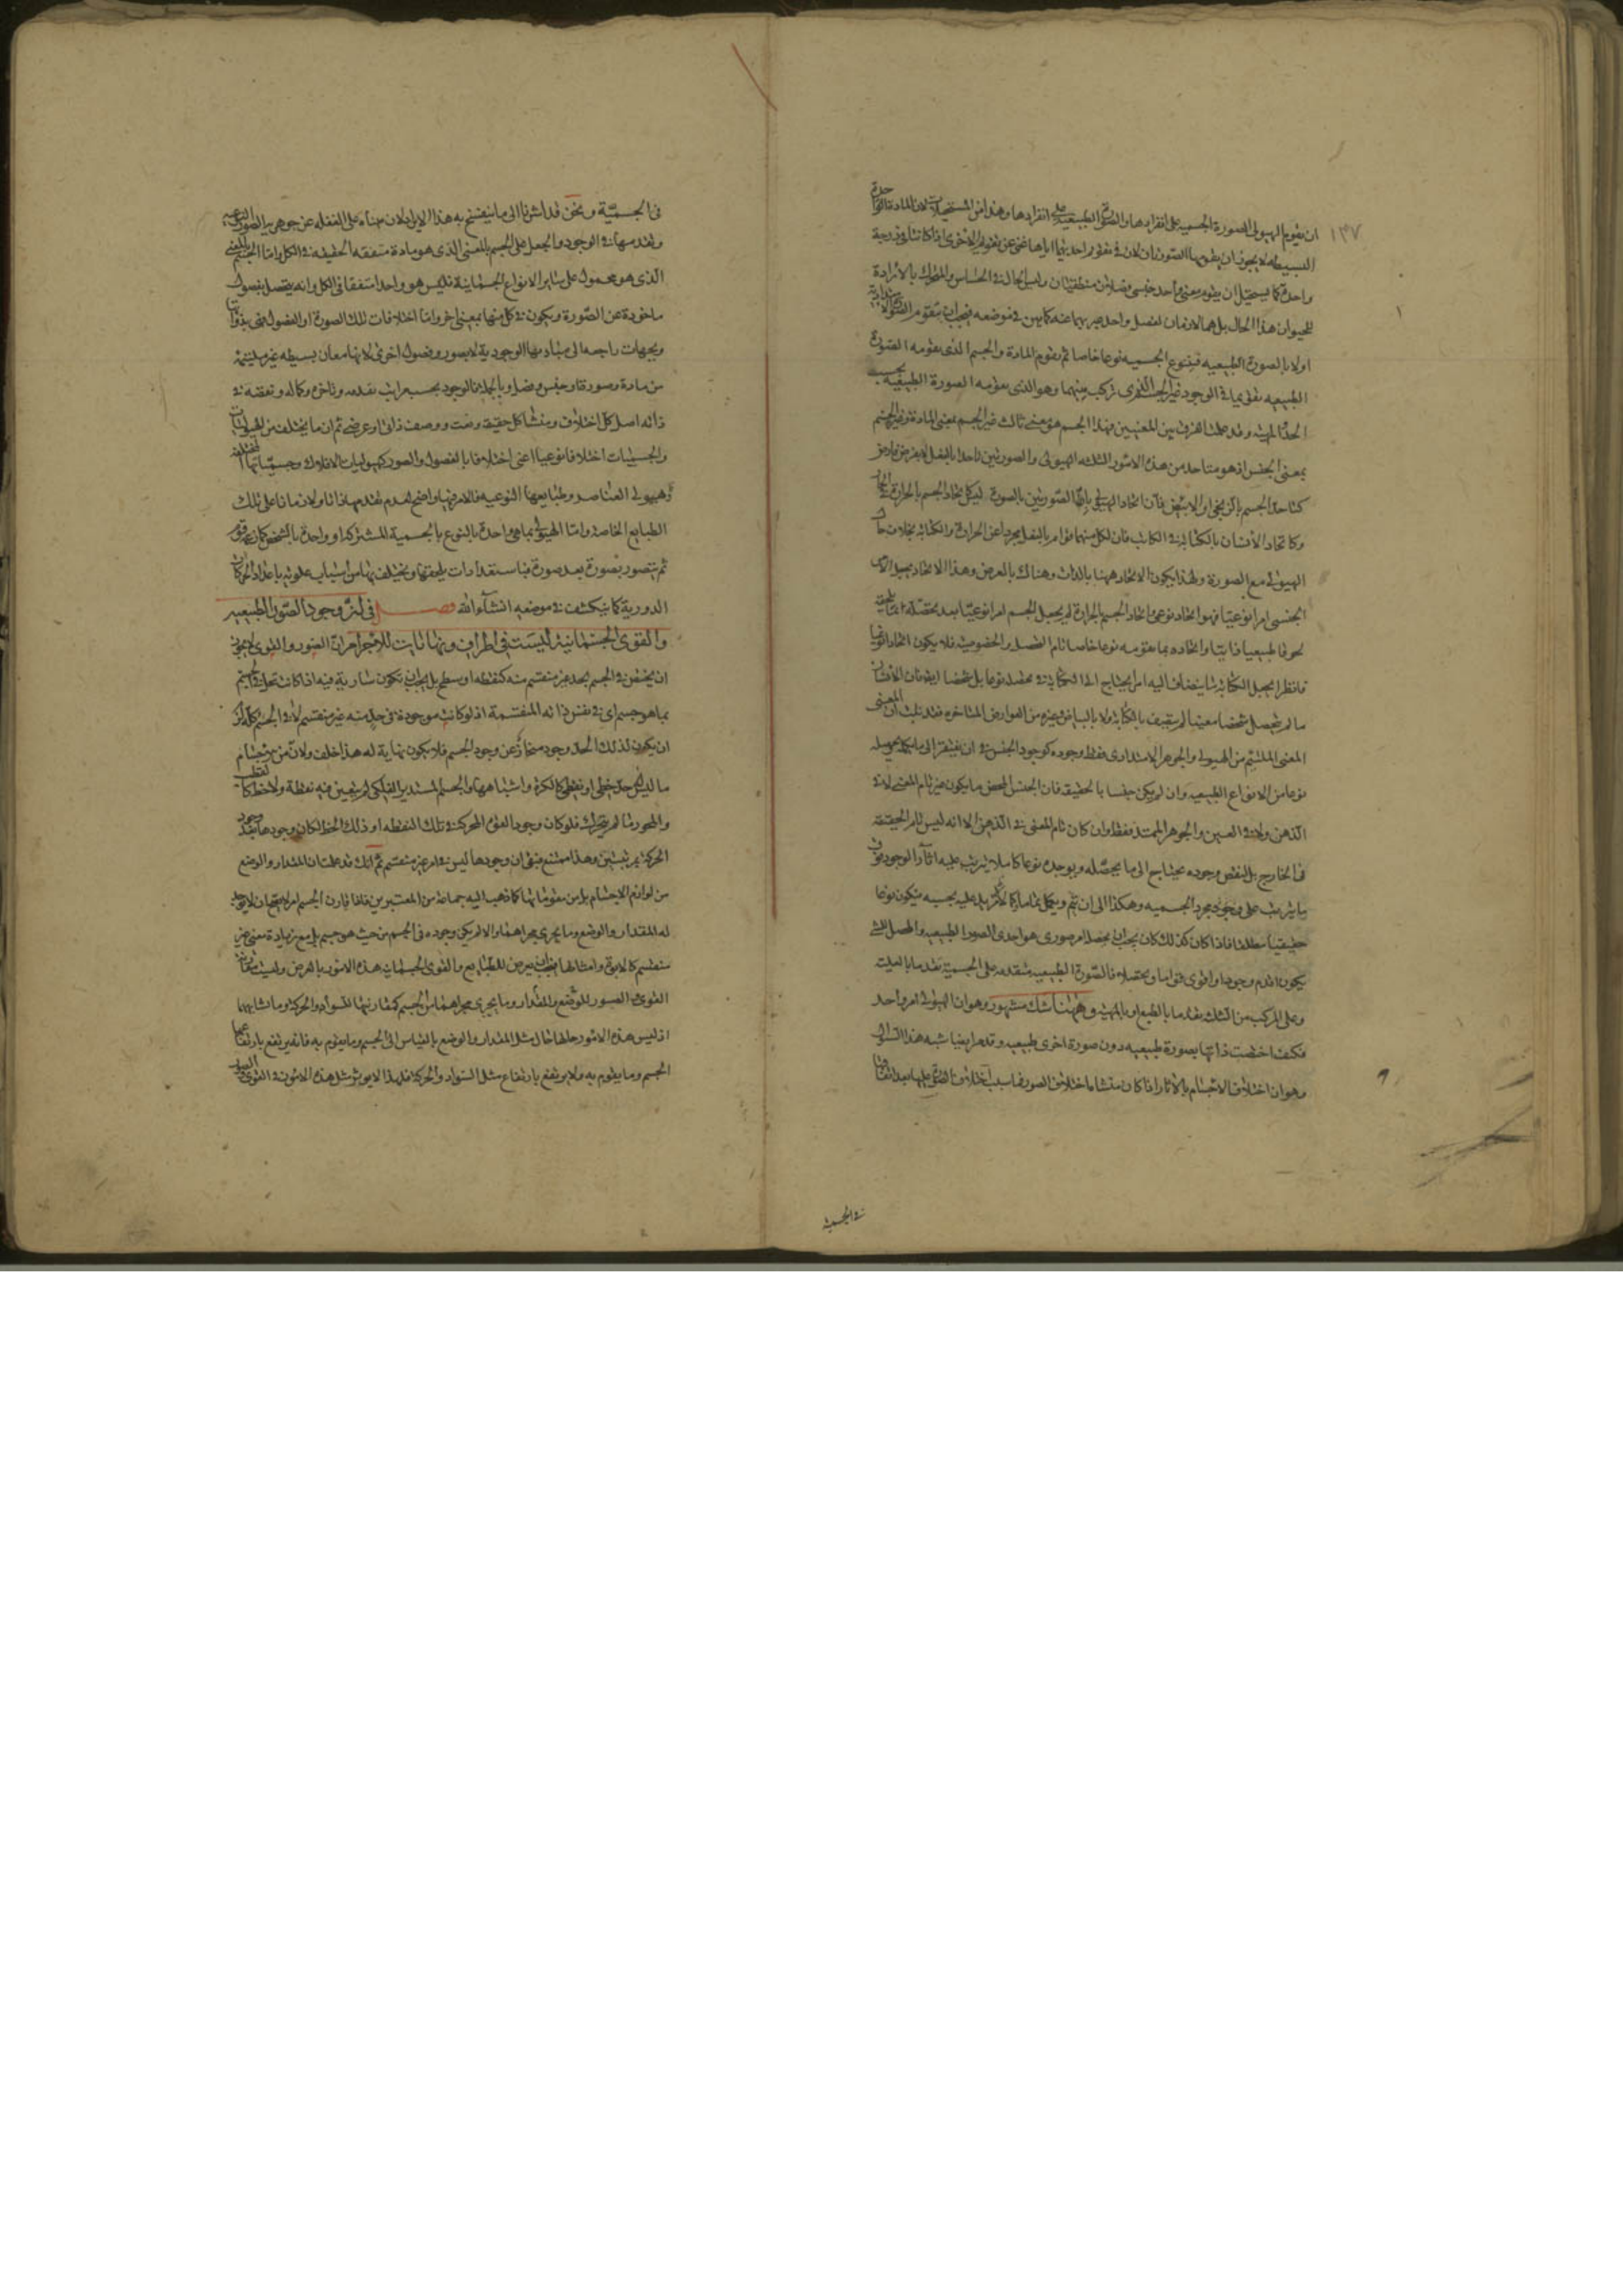 ١٣٧
ان يقوم الهيولى الصورة الجسميه على انفرادها والصورة الطبيعيه على انفرادها وهذا من المستحيلات لان المادة الواحدة
البسيطه لا يجوز ان يقومها الصورتان لان في تقويم احديهما اياها غنى عن تقويم الاخرى اذا كانتا في درجة
واحدة كما يستحيل ان يقوم معنى واحد جنسى فصلان منطقيان وليس الحال في الحساس والمتحرك بالارادة
للحيوان هذا الحال بل هما لازمان لفصل واحد عبر بهما عنه كما بين في موضعه فيجب ان يتقوم الصورة
اولا بالصورة الطبيعيه فيتنوع الجسميه نوعا خاصا ثم يقوم المادة والجسم الذى يقومه الصورة
الطبيعيه بقى بها في الوجود غير الجسم الذى تركب منهما وهو الذى يقومه الصورة الطبيعيه بحسب
الحد والمهيه وقد علمت الفرق بين المعنيين فهذا الجسم هو معنى ثالث غير الجسم بمعنى المادة وغير الجسم
بمعنى الجنس اذ هو متاحد من هذه الامور الثلثه الهيولى والصورتين تاحدا بالفعل لا بعرض خارج
كتاحد الجسم بالزنجى او الابيض فان اتحاد الهيولى باحد الصورتين بالصورة ليس كاتحاد الجسم بالحرارة في الحار
وكاتحاد الانسان بالكتابة في الكاتب فان لكل منهما قوام بالفعل مجردا عن الحرارة والكتابه بخلاف حال
الهيولى مع الصورة ولهذا يكون الاتحاد ههنا بالذات وهناك بالعرض وهذا الاتحاد يجعل الامر
الجنسى امرا نوعيا فهو اتحاد نوعى اتحاد الجسم بالحرارة لم يجعل الجسم امرا نوعيا بعد تحصله
نحوا طبيعيا ذاتيا واتحاده بما يقومه نوعا خاصا تام الفصل والخصوصيه فلا يكون اتحادا نوعيا
فانظر ايجعل الكتابة شيئا ينضاف اليه امرا يحتاج الى الكتابة في تحصله نوعا بل شخصا ايضا فان الانسان
ما لم يتحصل شخصا معينا لم يتصف بالكتابة ولا بالبياض وغيره من العوارض المتاخره فقد ثبت ان المعنى
المعنى الملتئم من الهيولى والجوهر الامتدادى فقط وجوده كوجود الجنس في ان يفتقر الى ما يكمله ويحصله
نوعا من الانواع الطبيعيه وان لم يكن جنسا بالحقيقه فان الجنس المحض ما يكون غير تام المعنى لا في
الذهن ولا في العين والجوهر الممتد فقط وان كان تام المعنى في الذهن الا انه ليس تام الحقيقه
في الخارج بل لنقص وجوده يحتاج الى ما يحصله ويوجده نوعا كاملا يترتب عليه اثار الوجود فوق
ما يترتب على وجود مجرد الجسميه وهكذا الى ان يتم ويكمل
حقيقيا مطلقا فاذا كان كذلك كان يجب ان يحصله امر صورى هو احدى الصور الطبيعيه والمحصل للشئ
يكون اقدم وجودا واقوى قواما وتحصلا فالصورة الطبيعيه متقدمه على الجسمية تقدما بالعليه
وعلى المركب من الثلث تقدما بالطبع او بالمهيه وههنا شك مشهور وهو ان الهيولى امر واحد
فكيف اختصت ذاتها بصورة طبيعيه دون صورة اخرى طبيعيه وقد مر ايضا شبه هذا السوال
وهو ان اختلاف الاجسام بالاثار اذا كان منشاه اختلاف الصور فما سبب اختلاف الصور عليها بعد اتفاقها
في الجسميه
في الجسمية ونحن قد اشرنا الى ما ينفسخ به هذا الايراد لان مبناه على الغفله عن جوهريه الصور النوعيه
وتقدمها في الوجود والجعل على الجسم بالمعنى الذى هو مادة متفقه الحقيقه في الكل واما الجسم بالمعنى
الذى هو محمول على ساير الانواع الجسمانية فليس هو واحدا متفقا في الكل وانه يتحصل بفصول
ماخوذة عن الصورة ويكون في كل منها بمعنى اخر واما اختلافات تلك الصورة او الفصول فهى بذواتها
وبجهات راجعه الى مباديها الوجودية لا بصور وفصول اخرى لانها معان بسيطه غير ملتئمة
من مادة وصورة او جنس وفصل وبالجملة فالوجود بحسب مراتب تقدمه وتاخره وكماله ونقصه في
ذاته اصل كل اختلاف ومنشا كل حقيقه ونعت ووصف ذاتى او عرضى ثم ان ما يختلف من الهيوليات
والجسميات اختلافا نوعيا اعنى اختلافا بالفصول والصور كهيوليات الافلاك وجسمياتها المختلفه
وهيولى العناصر وطبايعها النوعيه فالامر فيها واضح لعدم تقدمها ذاتا ولا زمانا على تلك
الطبايع الخاصة واما الهيولى بما هى واحدة بالنوع بالجسمية المشتركه او واحدة بالشخص
ثم يتصور بصورة بعد صورة فباستعدادات يلحقها ويختلف بها من اسباب علويه باعداد الحركات
الدورية كما ينكشف في موضعه انشاء الله فصل في نحو وجود الصور الطبيعيه
والقوى الجسمانية ليست في اطراف ونهايات للاجرام ان الصور والقوى لا يجوز
ان يختص في الجسم بحد غير منقسم منه كنقطه او سطح بل يجب ان تكون سارية فيه اذا كانت تحل في الجسم
بما هو جسم اى في نفس ذاته المنقسمة اذ لو كانت موجودة في حد منه غير منقسم لا في الجسم كله لزم
ان يكون لذلك الحد وجود منحاز عن وجود الجسم فلا يكون نهاية له هذا خلف ولان من الاجسام
ما ليس له حد خطى او نقطى كالكرة واشباهها والجسم المستدير الفلكى لم يتعين فيه نقطة ولا خط كالقطب
والمحور ما لم يتحرك فلو كان وجود القوى المحركة في تلك النقطه او ذلك الخط لكان وجودها بعد وجود
الحركة بمرتبتين وهذا ممتنع فبقى ان وجودها ليس في امر غير منقسم ثم انك قد علمت ان المقدار والوضع
من لوازم الاجسام بل من مقوماتها كما ذهب اليه جماعة من المعتبرين فاذا قارن الجسم امرا يتصحح ان لا يوجد
له المقدار والوضع وما يجرى مجراهما والا لم يكن وجوده في الجسم من حيث هو جسم بل مع زيادة معنى غير
منقسم كالابوة وامثالها فيجب ان يعرض للطبايع والقوى الجسمانيه هذه الامور بالعرض وليست مقارنة
القوى والصور للوضع والمقدار وما يجرى مجراهما من الجسم كمقارنتها للسواد والحركة وما شابههما
اذ ليس هذه الامور حالها حال مثل المقدار والوضع بالقياس الى الجسم وما يقوم به فانه يرتفع بارتفاعهما
الجسم وما يقوم به ولا يرتفع بارتفاع مثل السواد والحركة فلهذا لا يؤثر مثل هذه الامور في القوى والصور